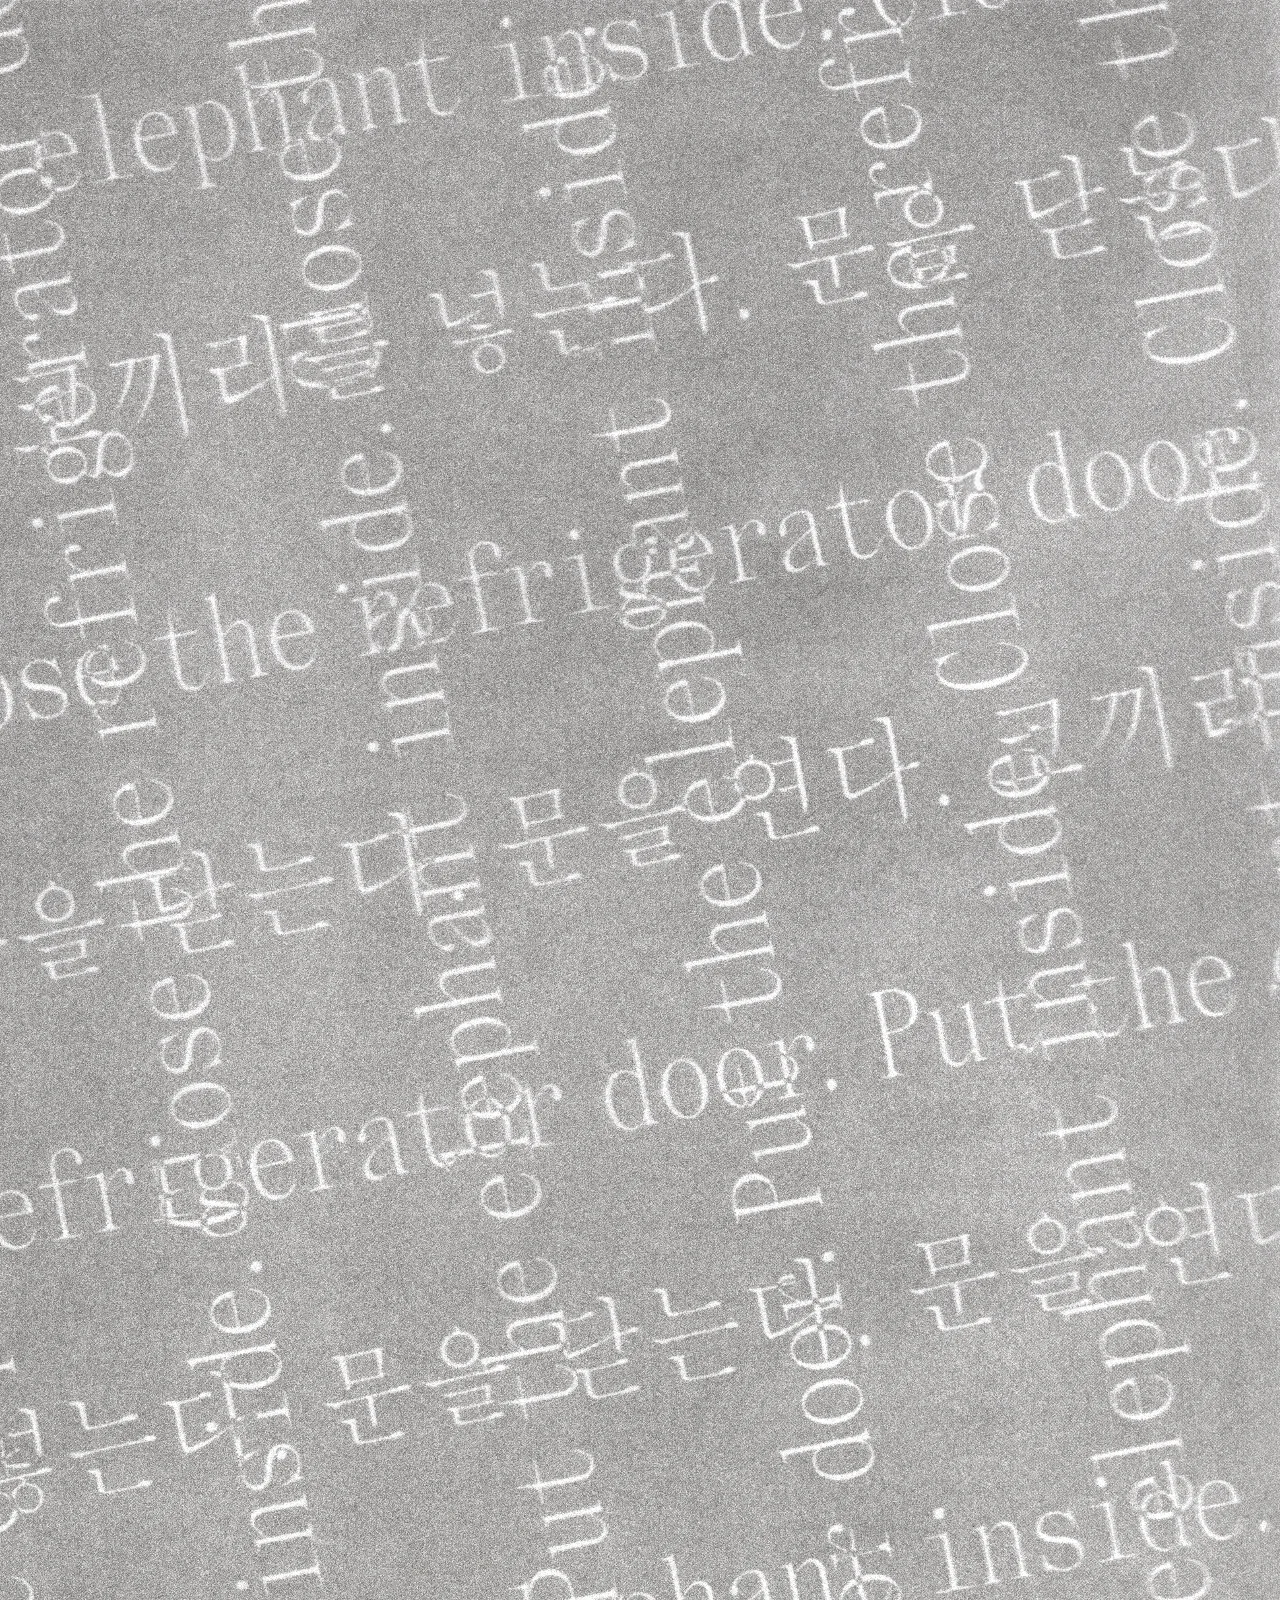 elephant inside.
코끼리를 넣는다. 문을 닫는다
ose the refrigerator door.
을 닫는다. 문을 연다. 코끼리
efrigerator door. Put the
넣는다. 문을 닫는다. 문을 연다
phant inside.
inside. Close the refrigerator
Put the elephant inside. Close th
door. Put the elephant inside.
elephant inside. Close the refr
inside. Close th